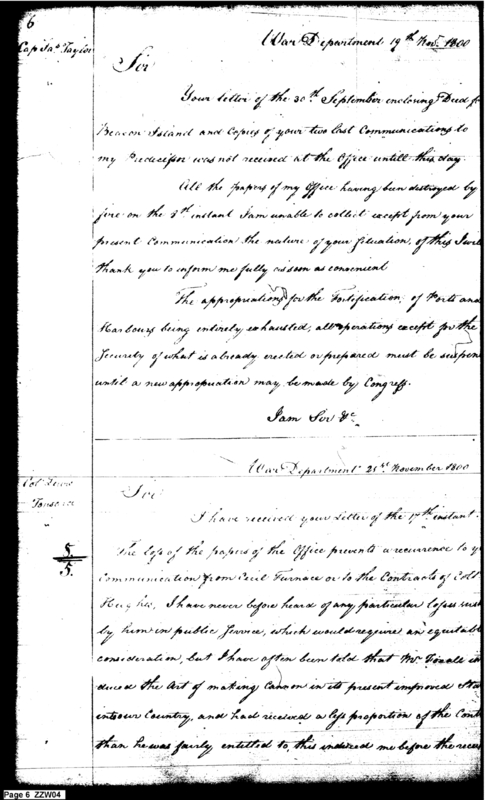 6
Cap Jas Taylor
War Department 19th Novr 1800
Sir
Your letter of the 30th September enclosing Deed for
Beacon Island and Copies of your two last Communications to
my Predicessor was not received at the Office untill this day.
All the papers of my Office having been destroyed by
fire on the 8th instant I am unable to collect except from your
present Communication the nature of your Situation, of this I will
thank you to inform me fully as soon as convenient
The appropriations for the Fortification of Ports and
Harbours being entirely exhausted, all operations except for the
Security of what is already erected or prepared must be suspen
until a new appropriation may be made by Congress.
I am Sir &c.
War Department 21st November 1800
Col
Tousard
Sir
I have received your Letter of the 17th instant.
5.
5.
The loss of the papers of the Office prevents a recurrence to y
Communication from Cecil Furnace or to the Contracts of Coll
Hughes, I have never before heard of any particular losses sus
by him in public Service, which would require an equitable
consideration, but I have often been told that Mr. Foxall in
duced the Art of making Cannon in its present improved Sta
into our Country, and had received a less proportion of the Cont
than he was fairly entitled to, this induced me before the rece
Page 6 ZZW04